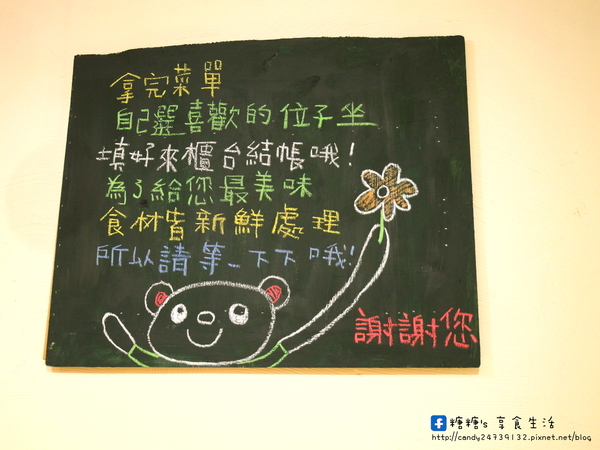 拿完菜單
自己選喜歡的位子坐
填好來櫃台結帳哦!
為了給您最美味
食材皆新鮮處理
所以請等一下下哦!
謝謝您
糖糖's 享食生活
http://candy24739132.pixnet.net/blog